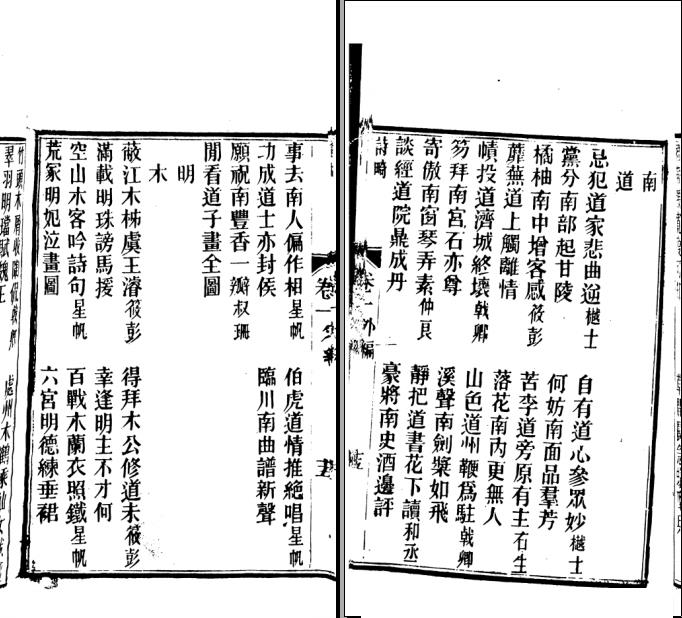 南
道
忌犯道家悲曲逆樾士 自有道心參眾妙樾士
黨分南部起甘陵 何妨南面品羣芳
橘柚南中增客感筱彭 苦李道旁原有主石生
蘼蕪道上觸離情 落花南內更無人
幘投道濟城終壞戟卿 山色道州鞭爲駐戟卿
笏拜南宮石亦尊 溪聲南劍槳如飛
寄傲南窗琴弄素仲良 靜把道書花下讀和丞
談經道院鼎成丹 豪將南史酒邊評
詩畸
卷一外編
事去南人偏作相星帆 伯虎道情推絶唱星帆
功成道士亦封侯 臨川南曲譜新聲
願祝南豐香一瓣叔珊
閒看道子畫全圖
明
木
蔽江木柹虞王濬筱彭 得拜木公修道未筱彭
滿載明珠謗馬援 幸逢明主不才何
空山木客吟詩句星帆 百戰木蘭衣照鐵星帆
荒冢明妃泣畫圖 六宮明德練垂裙
竹頭木屑收
翠羽明璫賦魏王
處州木鶴